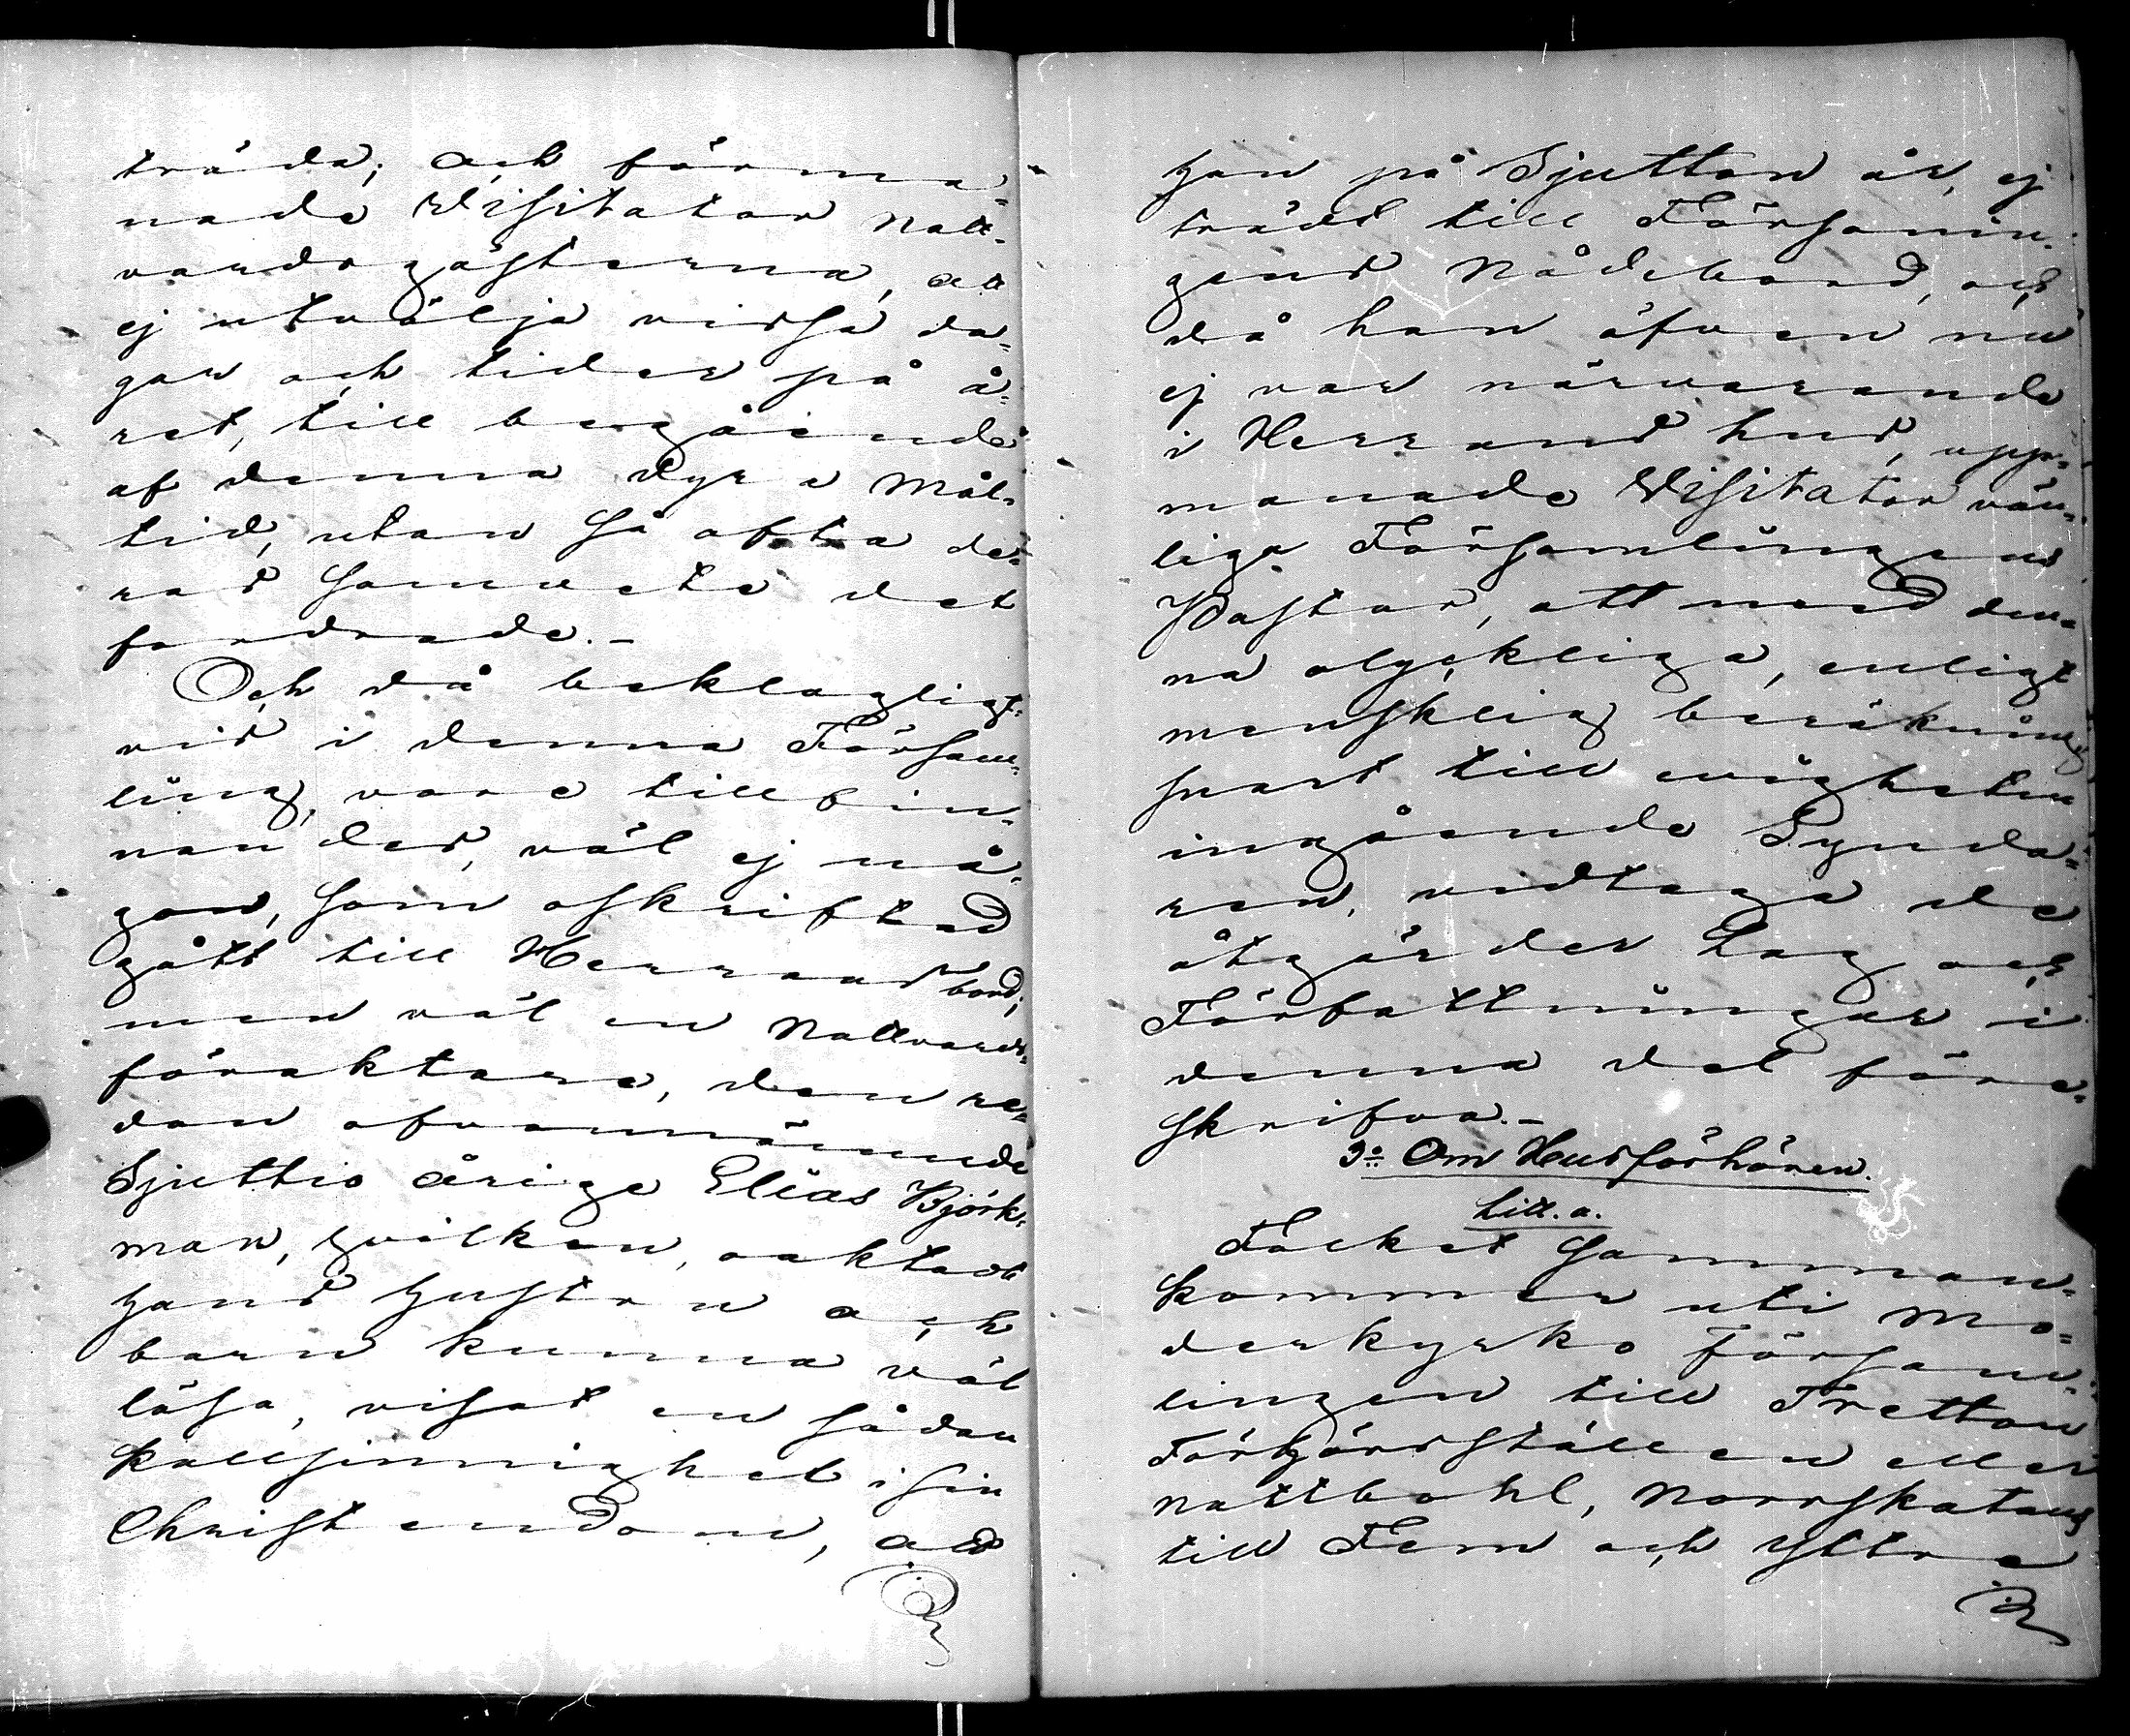 träda; och förma-
nade Visitator Natt-
vardsgästerna, att
ej utvälja vissa da-
gar och tider på å-
ret, till begående
af denna dyra Mål-
tid, utan så ofta de-
ras samvete det
fordrade.-
Och då beklagligt-
vis i denna Försam-
ling, vore till fin-
nandes, väl ej nå-
gon, som oskriftad
gått till Herrans bord;
men väl en Nattvards-
föraktare, den re-
dan ofvannämnde
Sjuttio årige Elias Björk-
man, hvilken, oaktadt
hans hustru och
barn kunna väl
läsa, visat en sådan
kallsinnighet i sin
Christendom, att
han på Sjutton år, ej
trädt till Församlin-
gens Nådebord, och
då han äfven nu
ej var närvarande
i Herrans hus, upp-
manade Visitator vän-
liga Församlingens
Pastor, att med den-
na olyckliga, enligt
mensklig beräkning
snart till evigheten
ingående Synda-
ren, vidtaga de
åtgärder Lag och
Författningar i
denna del före-
skrifva.-
3o Om Husförhören.
Litt. a.
Folket samman-
kommer uti Mo-
derkyrko Försam-
lingen till Tretton
Förhörsställen eller
nattbohl, Norrskatans
till Fem och Yttre